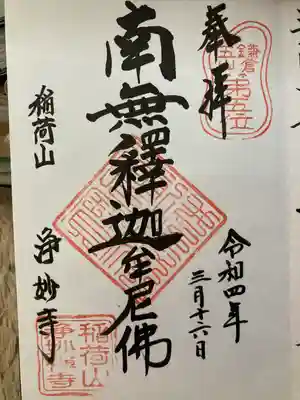 奉拝
鎌倉
五山第五位
令和四年
三月十六日
南無釋迦牟尼佛
稲荷山
浄妙寺
稲荷山
浄玅寺